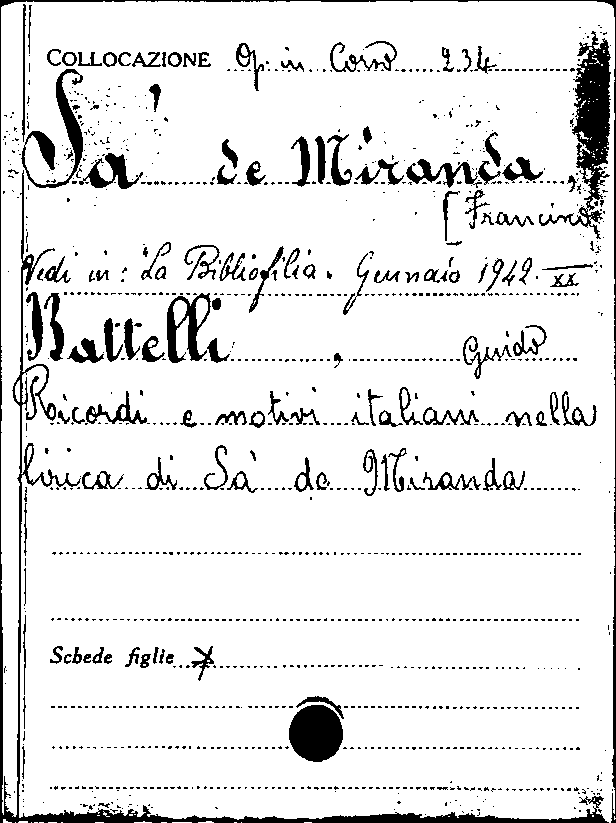 COLLOCAZIONE Op. in Corso 234
Sa' de Miranda,
[Francisco
Vedi in: La Bibliofilia. Gennaio 1942. XX
Battelli, Guido
Ricordi e motivi italiani nella
lirica di Sa' de Miranda
Schede figlie